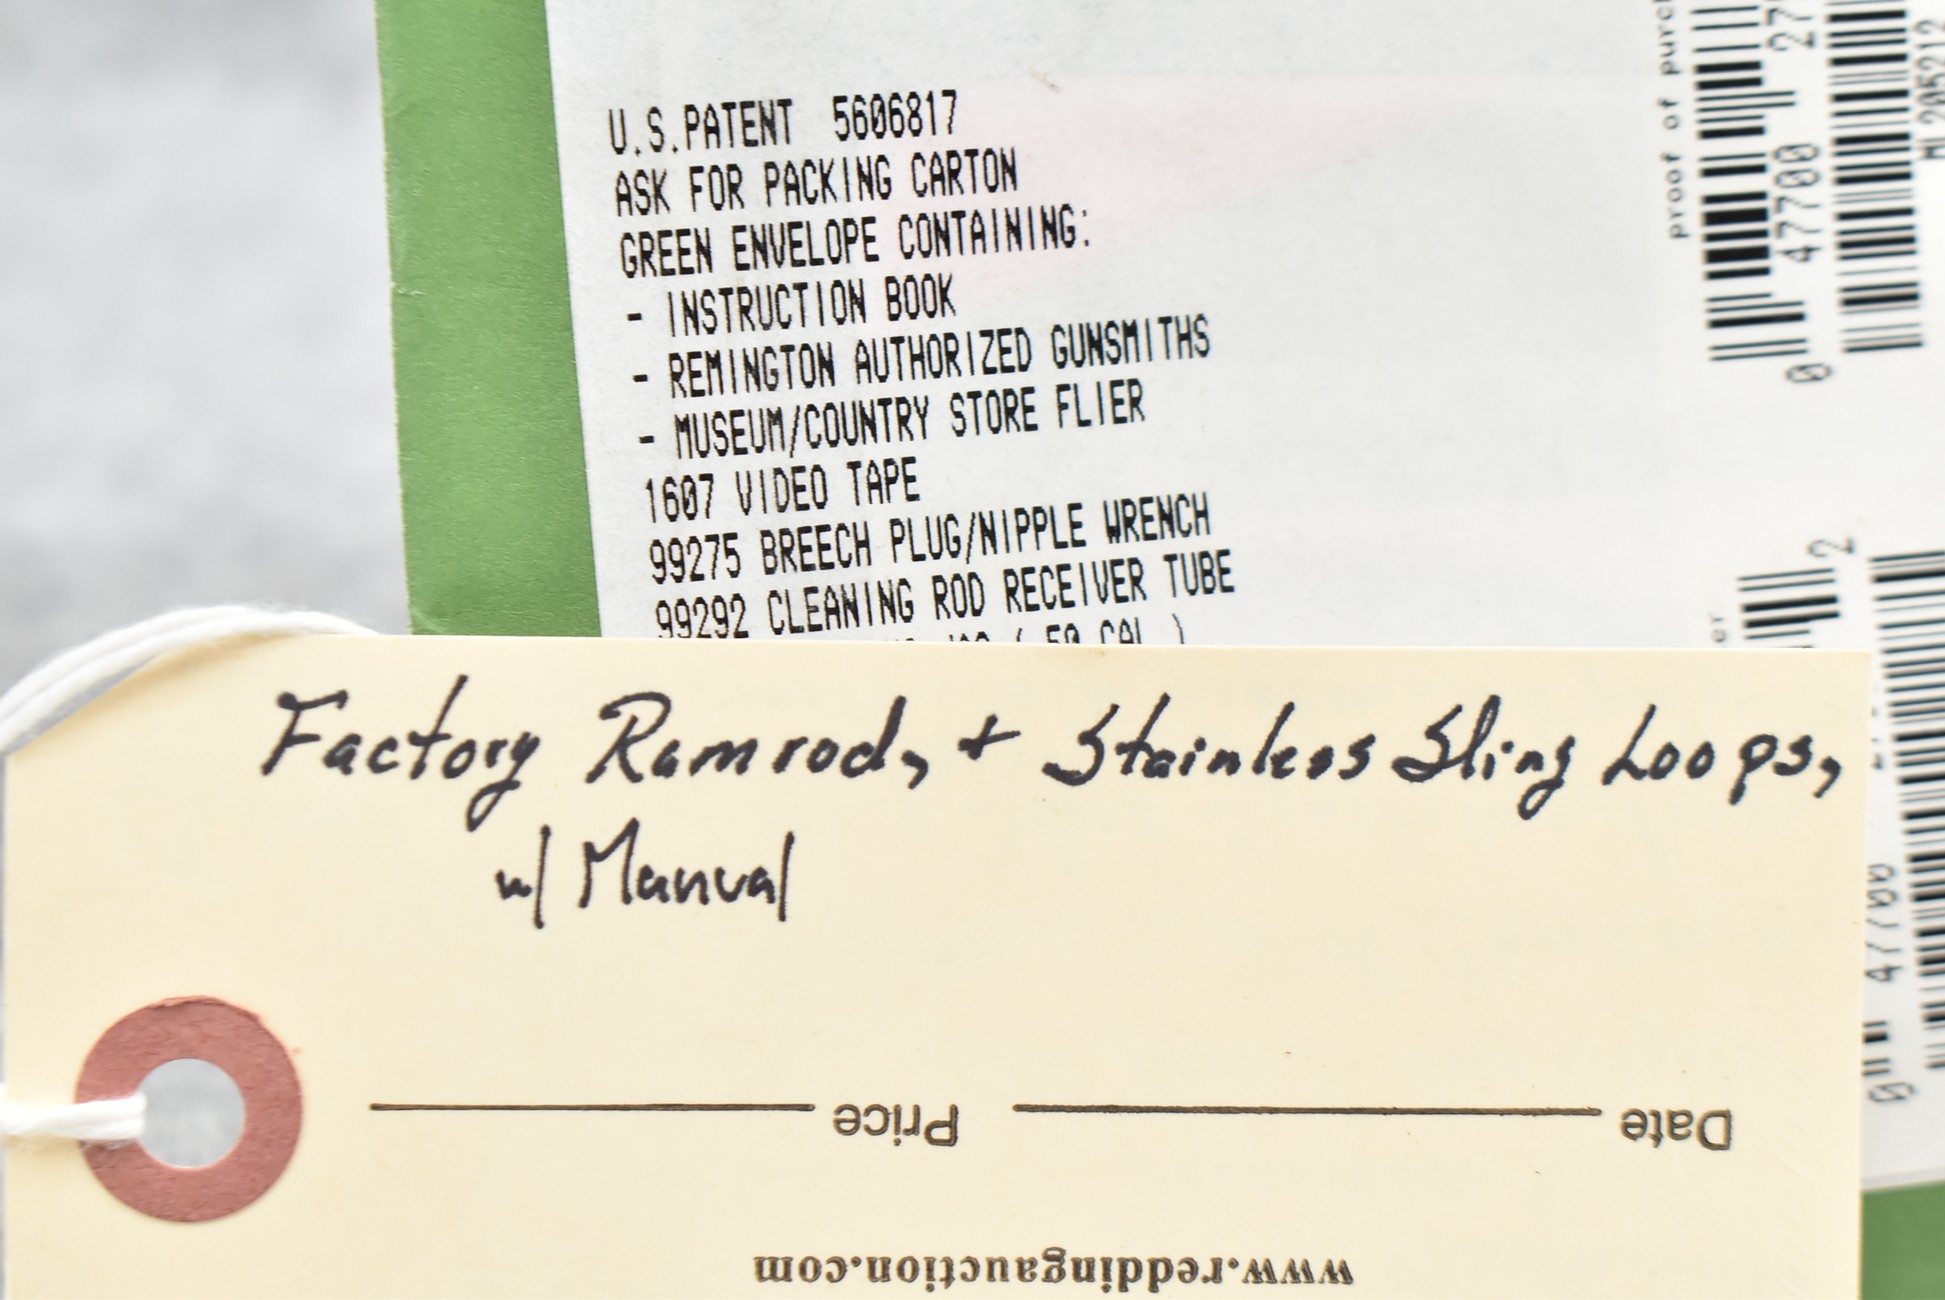 U.S.PATENT 5606817
ASK FOR PACKING CARTON
GREEN ENVELOPE CONTAINING:
- INSTRUCTION BOOK
- REMINGTON AUTHORIZED GUNSMITHS
- MUSEUM/COUNTRY STORE FLIER
1607 VIDEO TAPE
99275 BREECH PLUG/NIPPLE WRENCH
99292 CLEANING ROD RECEIVER TUBE
(.50 CAL.)
proof of
0 47700 27
ML 205212
2
0 47700
Factory Ramrod, + Stainless Sling Loops,
w/ Manual
Date
Price
www.reddingauction.com